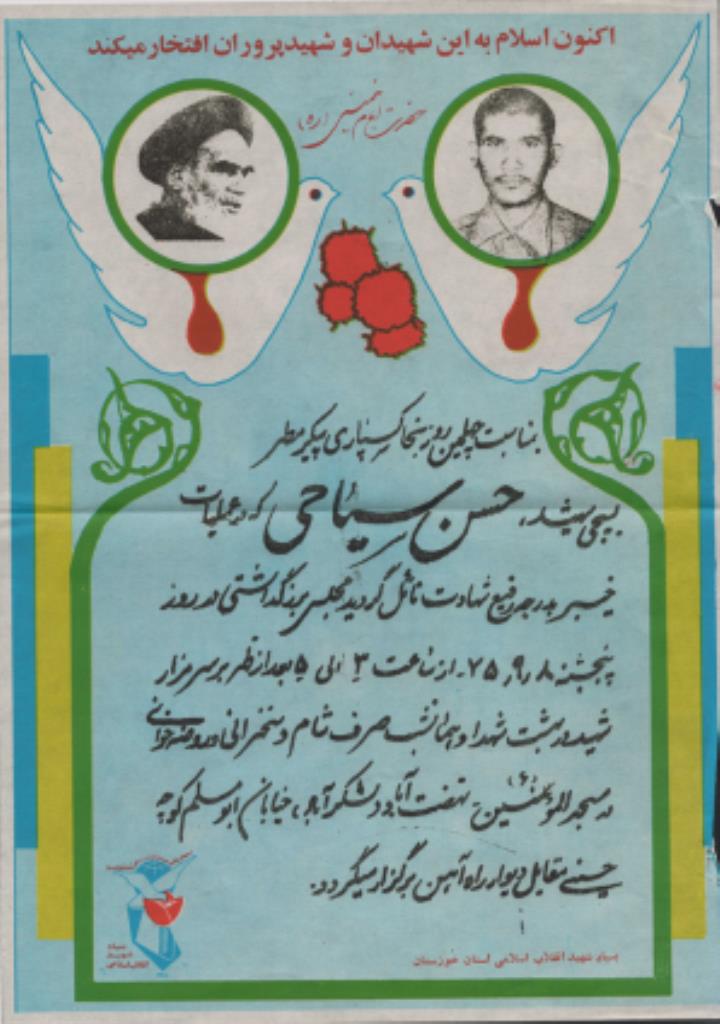 اکنون اسلام به این شهیدان و شهیدپروران افتخار میکند
حضرت امام خمینی (ره)
بمناسبت چهلمین روز بخاکسپاری پیکر مطهر
بسیجی شهید، حسن سیاحی که در عملیات
خیبر بدرجه رفیع شهادت نائل گردید مجلس بزرگداشتی در روز
پنجشنبه ۷۵،۹،۸ از ساعت ۳ الی ۵ بعد از ظهر بر سر مزار
شهید در بهشت شهدا و همانشب صرف شام و سخنرانی و روضه خوانی
در مسجد امیرالمؤمنین (ع) نهضت آباد لشکر آباد، خیابان ابومسلم کوچه
حسنی مقابل دیوار راه آهن برگزار میگردد.
بنیاد شهید انقلاب اسلامی استان خوزستان
بنیاد
شهید
انقلاب اسلامی